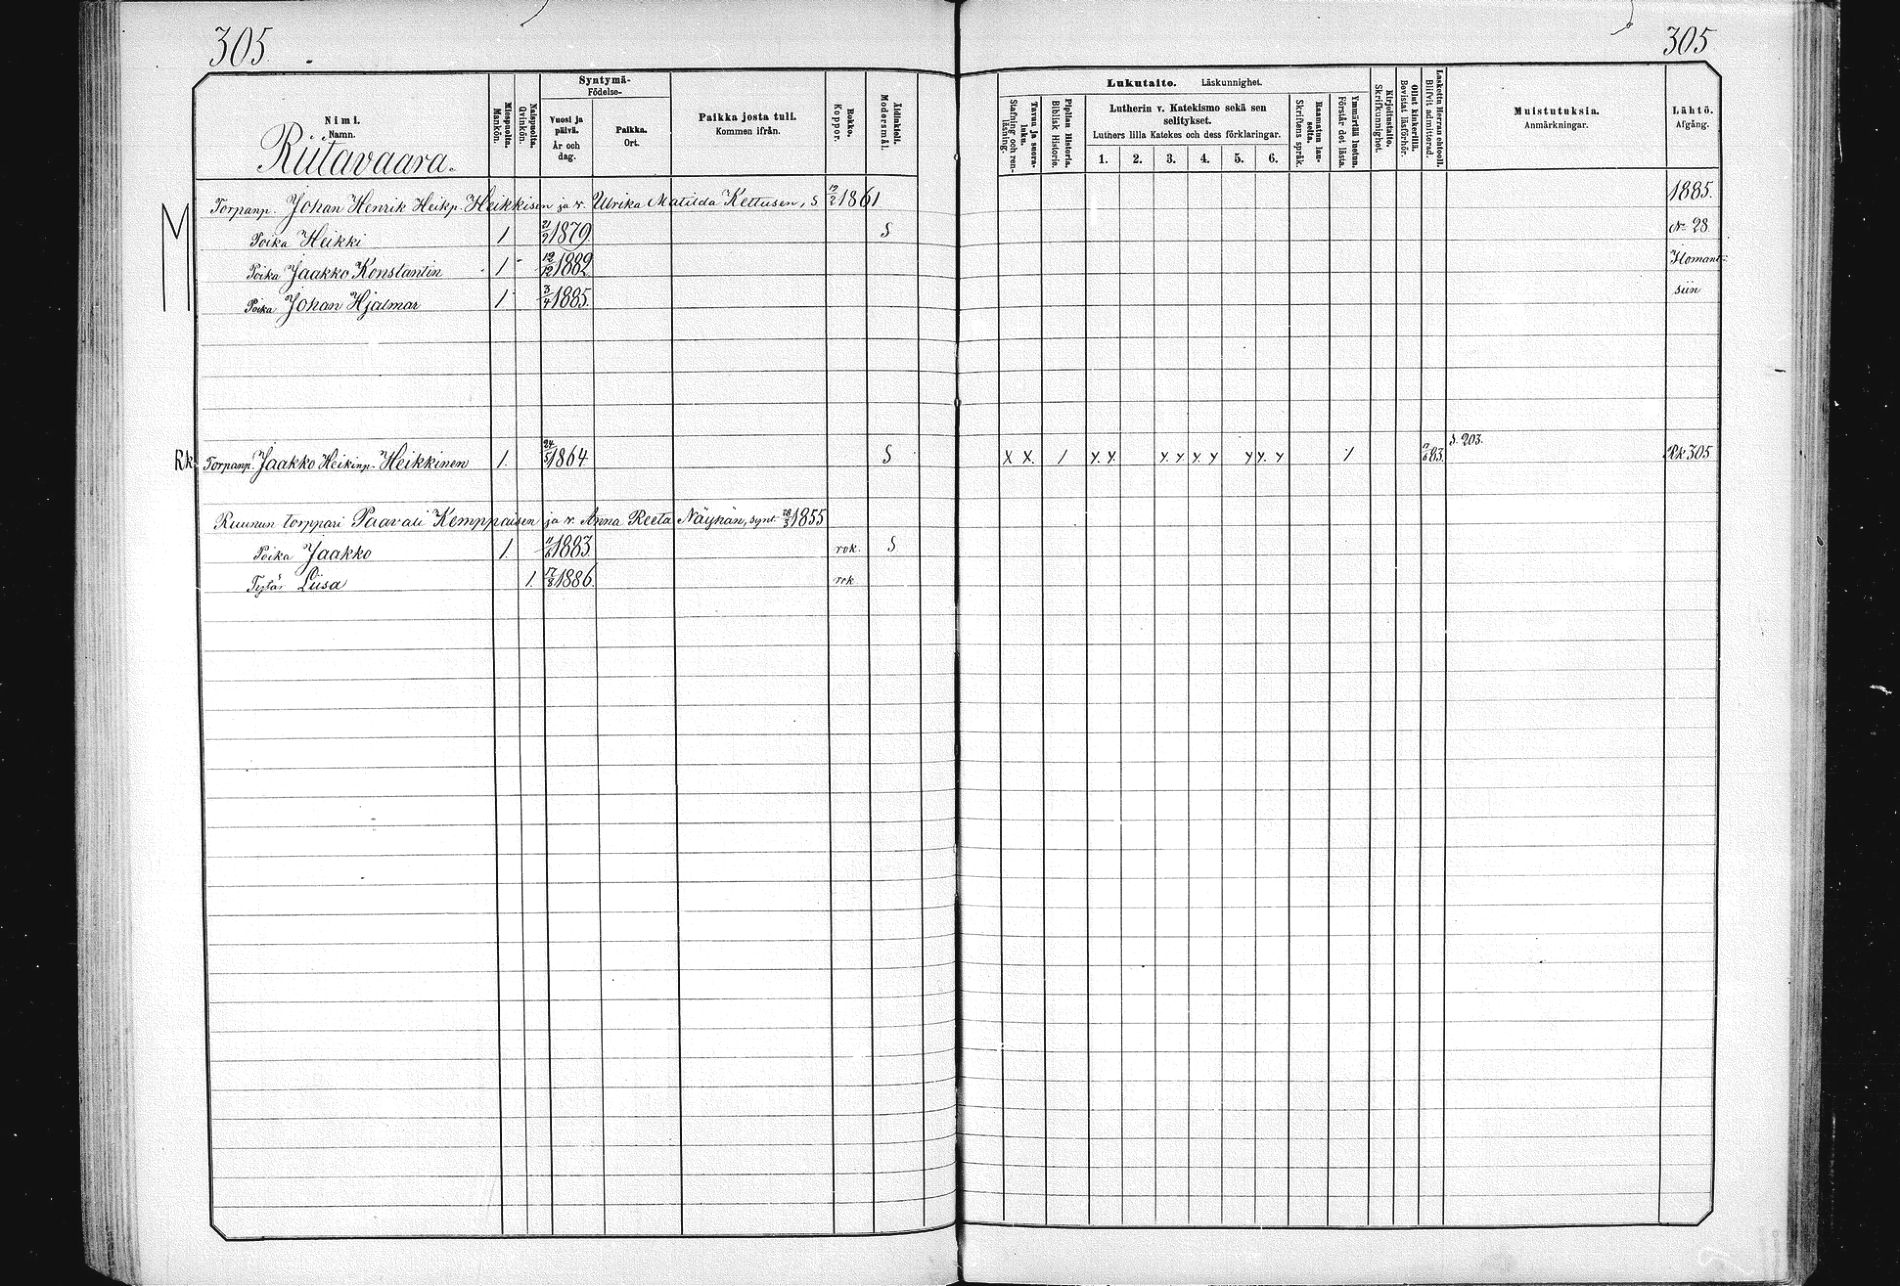 305.
305
Nimi.
Namn.
Riitavaara.
Miespuolia.
Mankön.
Naispuolia.
Qvinkön.
Syntymä-
Födelse-
Vuosi ja päivä.
År och dag.
Paikka.
Ort.
Paikka josta tuli.
Kommen ifrån.
Rokko.
Koppor.
Äidinkieli.
Modersmål.
Lukutaito. Läskunnighet.
Tavuu ja suora-luku.
Stafning och ren-läsning.
Piplian Historia.
Biblisk Historie.
Lutherin v. Katekismo sekä sen selitykset.
Luthers lilla Katekes och dess förklaringar.
1. 2. 3. 4. 5. 6.
Raamatun lau-selta.
Skriftens språk.
Ymmärtää luetun.
Förstår det lästa.
Kirjoitustaito.
Skrifkunnighet.
Ollut kinkerillä.
Bevistat läsförhör.
Laskettu Herran ehtooll.
Blifvit admitterad.
Muistutuksia.
Anmärkningar.
Lähtö.
Afgång.
M Torpanp. Johan Henrik Heikp. Heikkisen ja v. Ulrika Matilda Kettusen, s 19/2 1861 1885.
Poika Heikki 1 21/9 1879. S No 28
Poika Jaakko Konstantin 1 12/12 1882 Ilomant-
Poika Johan Hjalmar 1 3/4 1885. siin
Rk. Torpanp. Jaakko Heikinp. Heikkinen 1. 24/5 1864 S X X. / y. y. y. y y. y y y. y / 83. s. 203. Rk 305
Ruunun torppari Paavali Kemppaisen ja v. Anna Reeta Näykän, synt. 28/3 1855
Poika Jaakko 1. 1883. rok. S
Tytär Liisa 1. 17/8 1886. rok